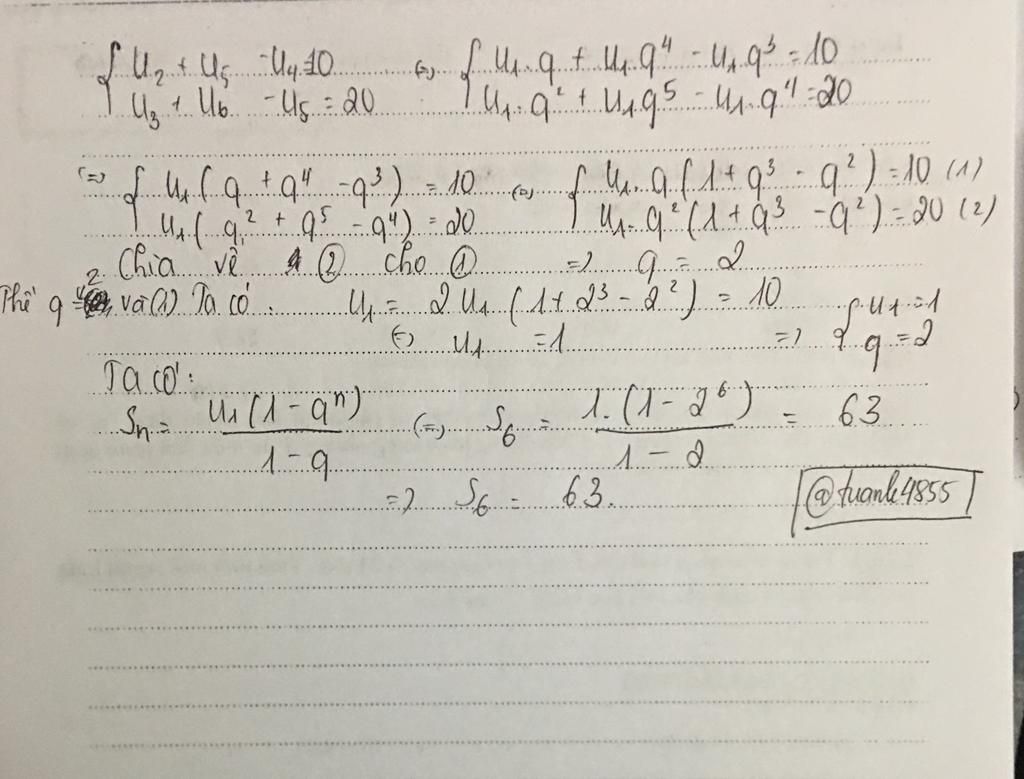 { U₂ + U₅ - U₄ = 10 (=) { U₁.q + U₁.q⁴ - U₁.q³ = 10
U₃ + U₆ - U₅ = 20 U₁.q² + U₁q⁵ - U₁.q⁴ = 20
(=) { U₁(q + q⁴ - q³) = 10 (=) { U₁.q(1 + q³ - q²) = 10 (1)
U₁(q² + q⁵ - q⁴) = 20 U₁.q²(1 + q³ - q²) = 20 (2)
Chia vế ② cho ① => q = 2
Thế q = 2 và (1) Ta có: U₁ = 2U₁(1 + 2³ - 2²) = 10 { U₁ = 1
(=) U₁ = 1 => q = 2
Ta có:
Sₙ = U₁(1 - qⁿ) / 1 - q (=) S₆ = 1.(1 - 2⁶) / 1 - 2 = 63
=> S₆ = 63.
@tuanh4855